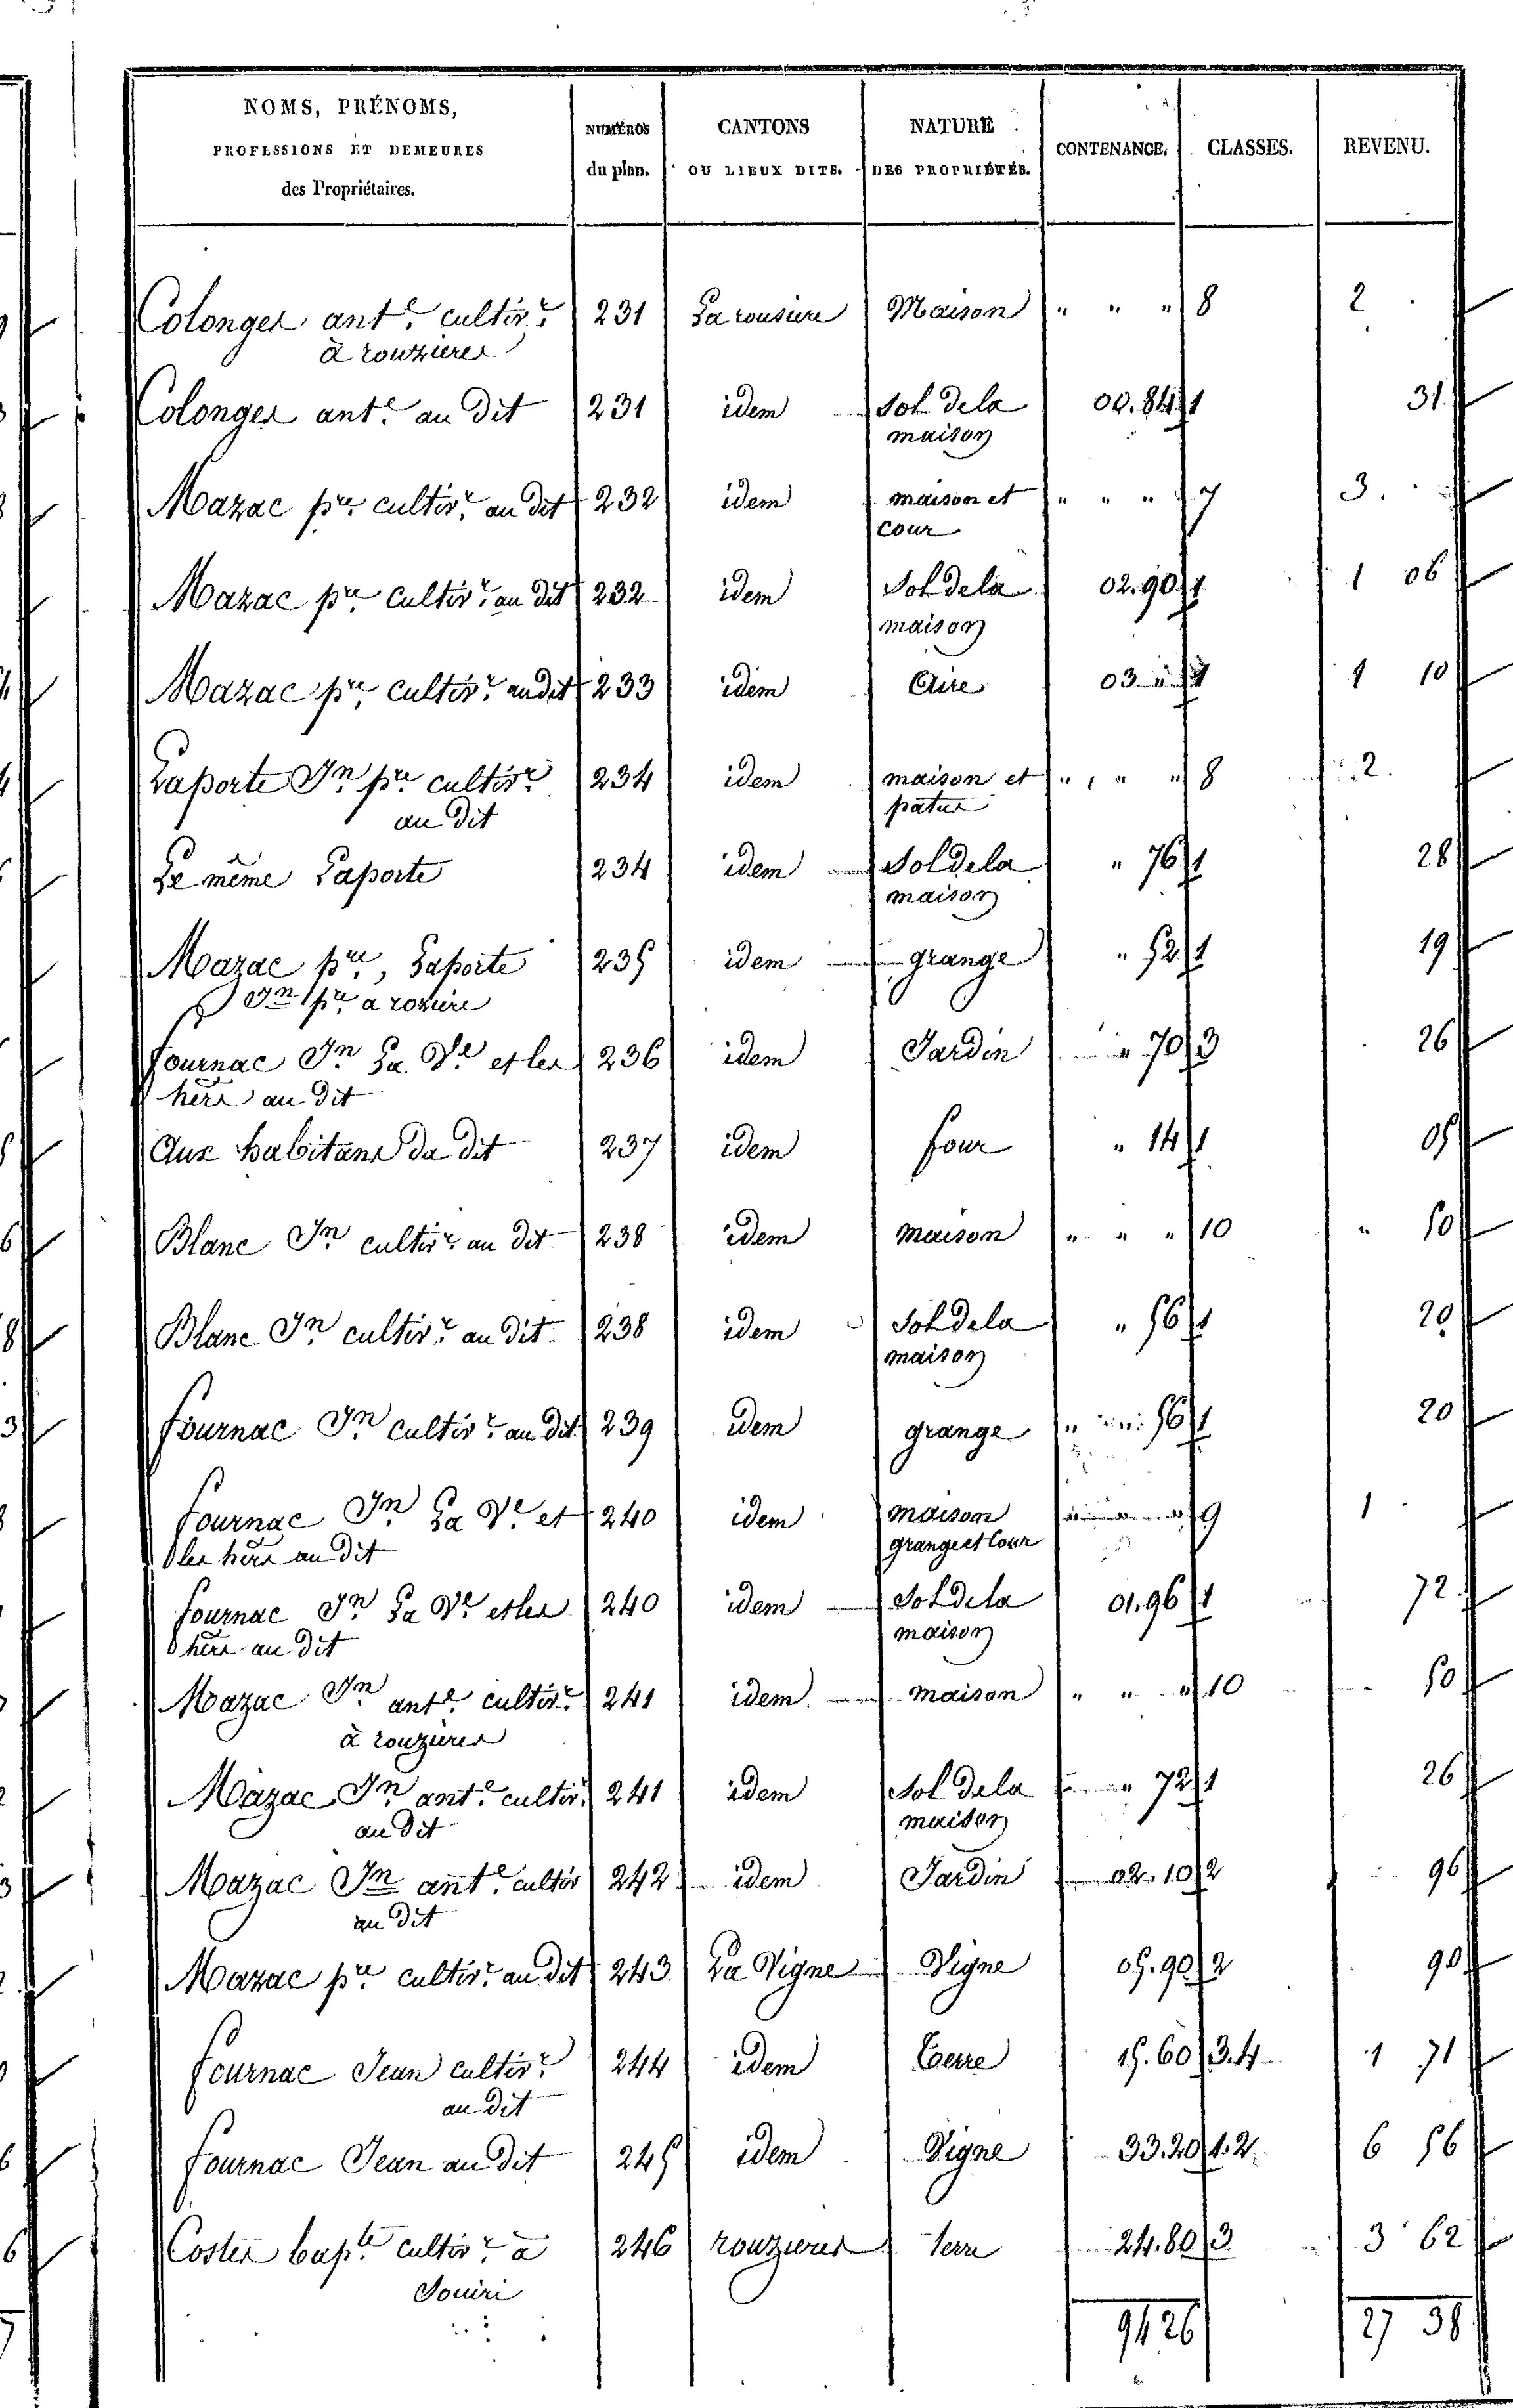 NOMS, PRÉNOMS, PROFESSIONS ET DEMEURES des Propriétaires. | NUMÉROS du plan. | CANTONS OU LIEUX DITS. | NATURE DES PROPRIÉTÉS. | CONTENANCE. | CLASSES. | REVENU.
Colonges ant.e cultiv.r 231 La rousiere Maison " " " 8 2
à rouzieres
Colonges ant.e au dit 231 idem Sol de la 00.84 1 31
maison
Mazac p.re cultiv.r au dit 232 idem maison et " " " 7 3
cour
Mazac p.re cultiv.r au dit 232 idem Sol de la 02.90 1 1 06
maison
Mazac p.re cultiv.r au dit 233 idem Aire 03 " 1 1 10
Laporte Jn p.re cultiv.r 234 idem maison et " " " 8 2
au dit patus
Le même Laporte 234 idem Sol de la " 76 1 28
maison
Mazac p.re, Laporte 235 idem grange " 52 1 19
Jn p.re a roziere
fournac Jn La Ve et les 236 idem Jardin " 70 3 26
hers au dit
Aux habitans du dit 237 idem four " 14 1 05
Blanc Jn cultiv.r au dit 238 idem maison " " " 10 " 50
Blanc Jn cultiv.r au dit 238 idem Sol de la " 56 1 20
maison
fournac Jn cultiv.r au dit 239 idem grange " " 56 1 20
fournac Jn La Ve et 240 idem maison " " " 9 1
les hers au dit grange et Cour
fournac Jn La Ve et les 240 idem Sol de la 01.96 1 72
hers au dit maison
Mazac Jn ant.e cultiv.r 241 idem maison " " " 10 50
à rouzieres
Mazac Jn ant.e cultiv.r 241 idem Sol de la " 72 1 26
au dit maison
Mazac Jn ant.e cultiv 242 idem Jardin 02.10 2 96
au dit
Mazac p.re cultiv.r au dit 243 La Vigne Vigne 05.90 2 90
fournac Jean cultiv.r 244 idem Terre 15.60 3.4 1 71
au dit
fournac Jean au dit 245 idem Vigne 33.20 1.2 6 56
Costes bap.te cultiv.r à 246 rouzieres terre 24.80 3 3 62
Souiri
94 26 27 38